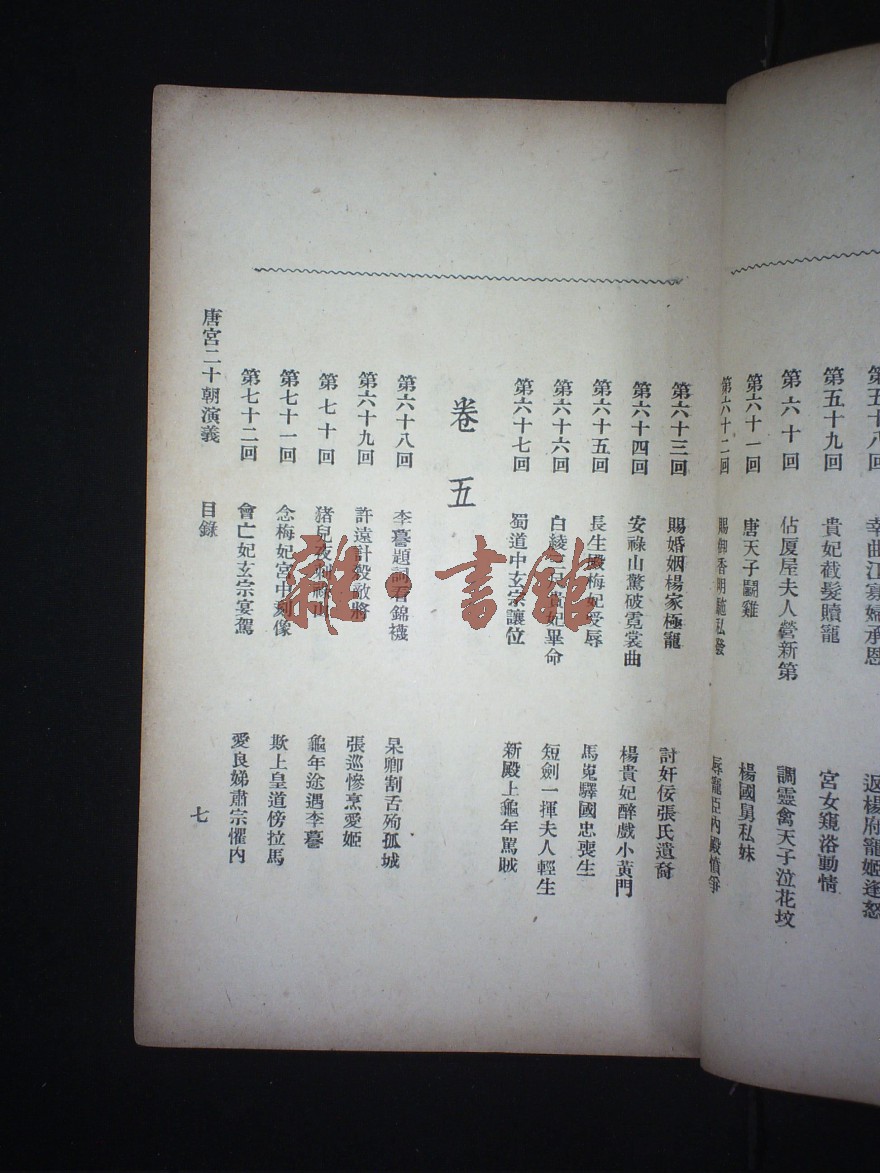 第五十八回 幸曲江寡婦承恩 返楊府寵姬逢怒
第五十九回 貴妃截髮贖寵 宮女窺浴動情
第六十回 佔厦屋夫人營新第 調靈禽天子泣花坟
第六十一回 唐天子鬭雞 楊國舅私妹
第六十二回 賜御香明駞私發 辱寵臣內殿憤爭
第六十三回 賜婚姻楊家極寵 討奸佞張氏遺裔
第六十四回 安祿山驚破霓裳曲 楊貴妃醉戲小黃門
第六十五回 長生殿梅妃受辱 馬嵬驛國忠喪生
第六十六回 白綾三尺貴妃畢命 短劍一揮夫人輕生
第六十七回 蜀道中玄宗讓位 新殿上龜年罵賊
卷五
第六十八回 李謩題詞看錦襪 杲卿割舌殉孤城
第六十九回 許遠計殺敵將 張巡慘烹愛姬
第七十回 猪兒夜刺祿山 龜年途遇李謩
第七十一回 念梅妃宮中刻像 欺上皇道傍拉馬
第七十二回 會亡妃玄宗宴駕 愛良娣肅宗懼內
唐宮二十朝演義 目錄 七
雜·書館